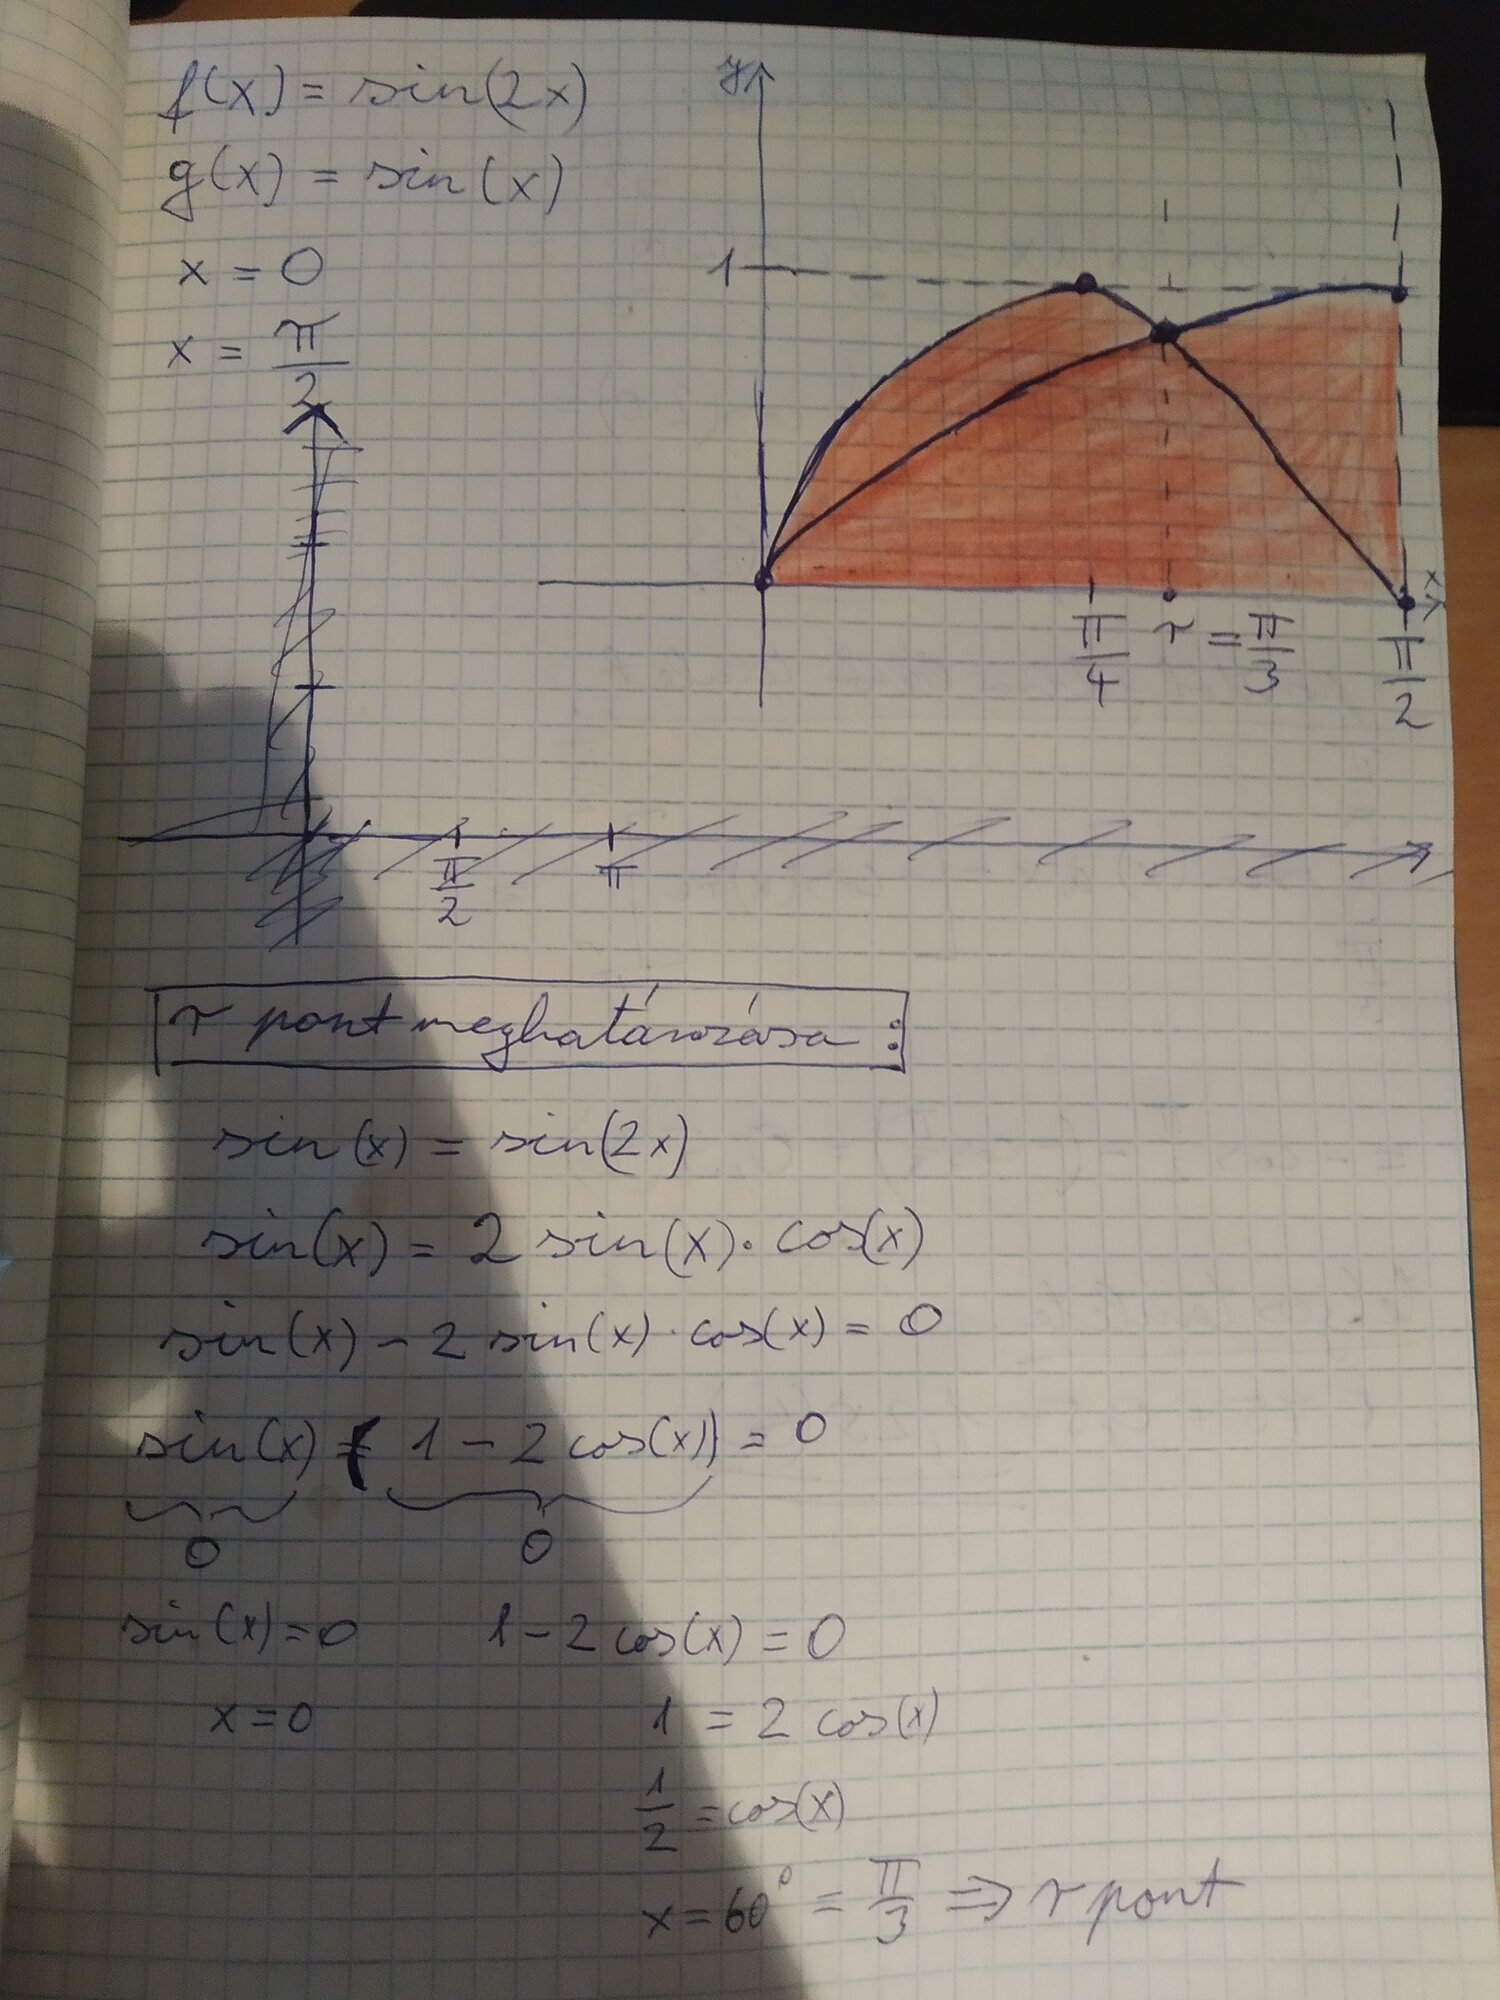 f(x) = sin(2x)
g(x) = sin(x)
x = 0
x = π/2
y
1
x
π/4
r = π/3
π/2
π/2
π
r pont meghatározása :
sin(x) = sin(2x)
sin(x) = 2 sin(x) · cos(x)
sin(x) - 2 sin(x) · cos(x) = 0
sin(x) (1 - 2 cos(x)) = 0
0 0
sin(x) = 0 1 - 2 cos(x) = 0
x = 0 1 = 2 cos(x)
1/2 = cos(x)
x = 60° = π/3 ⇒ r pont